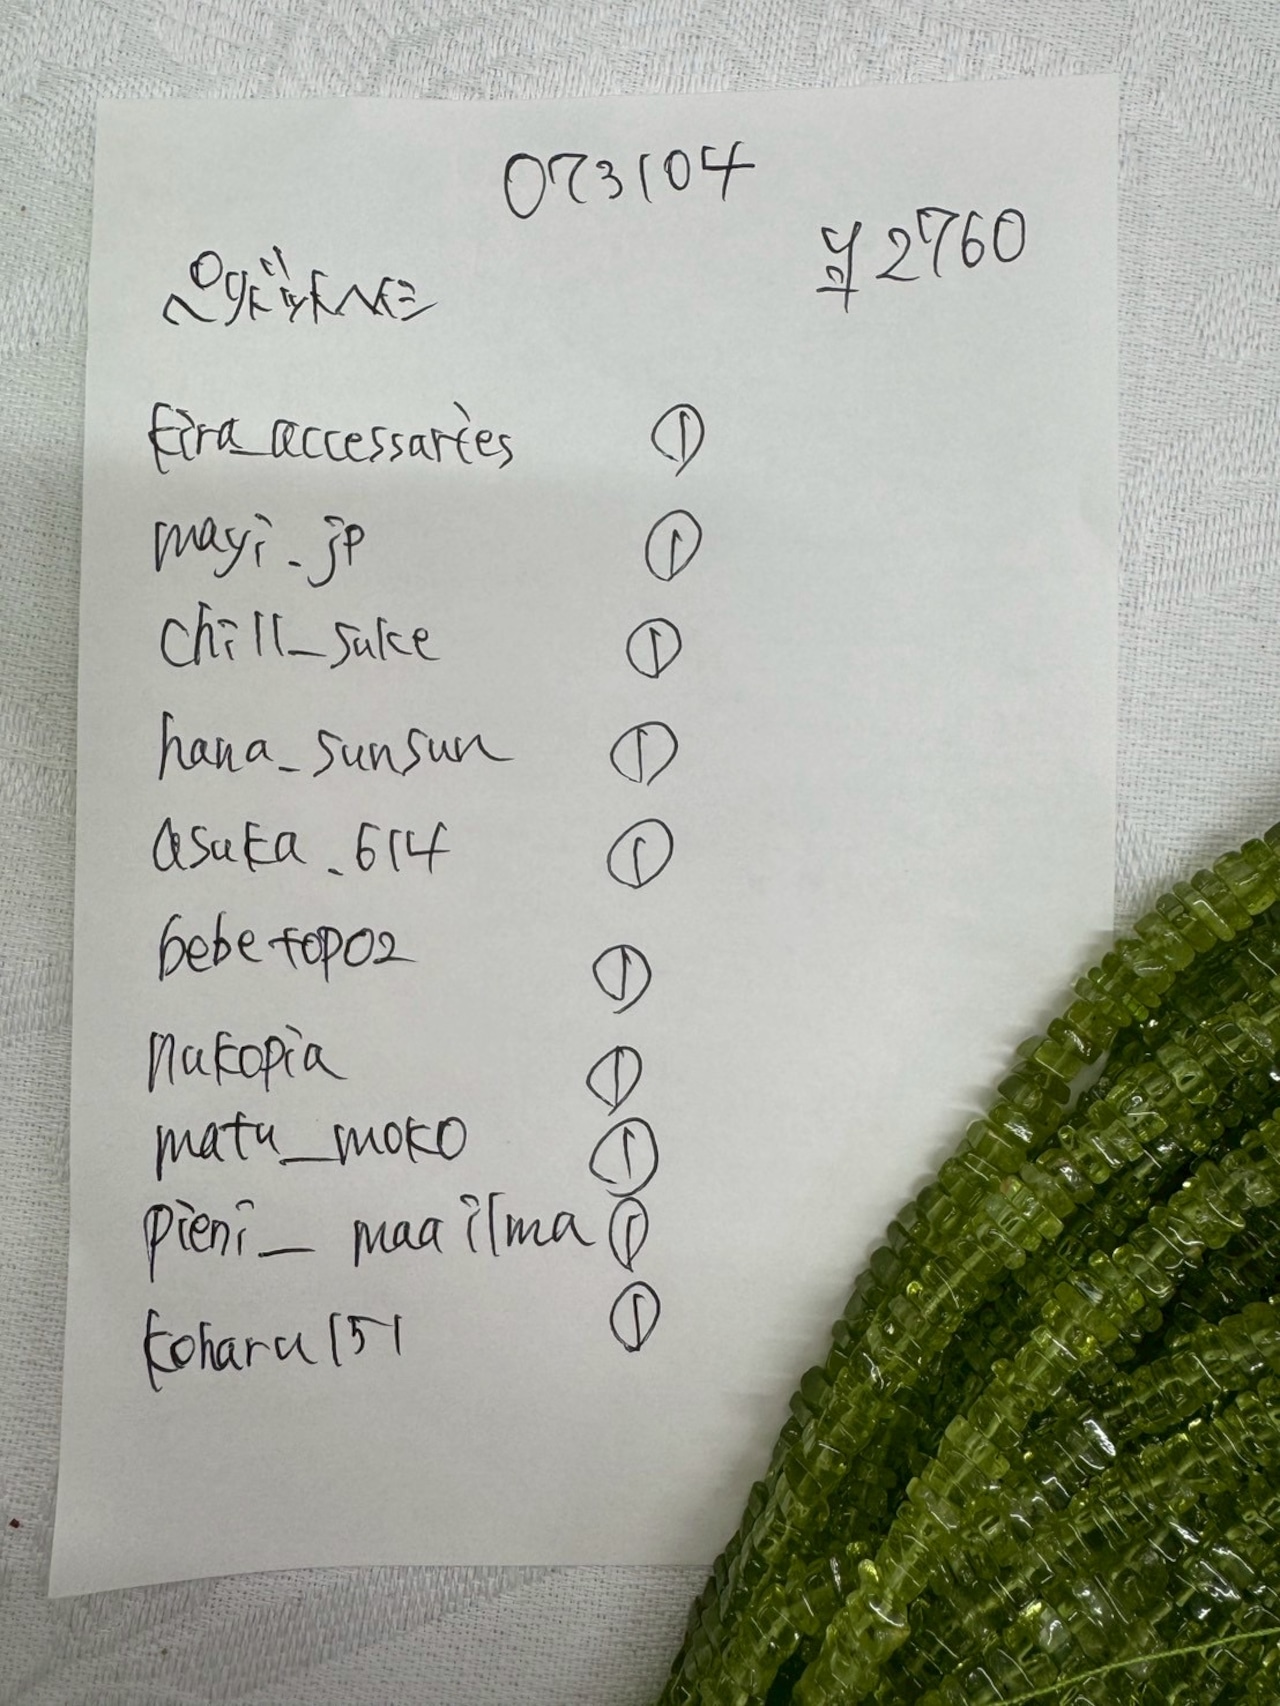 073104
¥2760
kira_accessaries ①
mayi.jp ①
chill_suke ①
hana_sunsun ①
asuka.614 ①
bebetopo2 ①
nukopia ①
matu_moko ①
pieni_ maailma ①
koharu151 ①